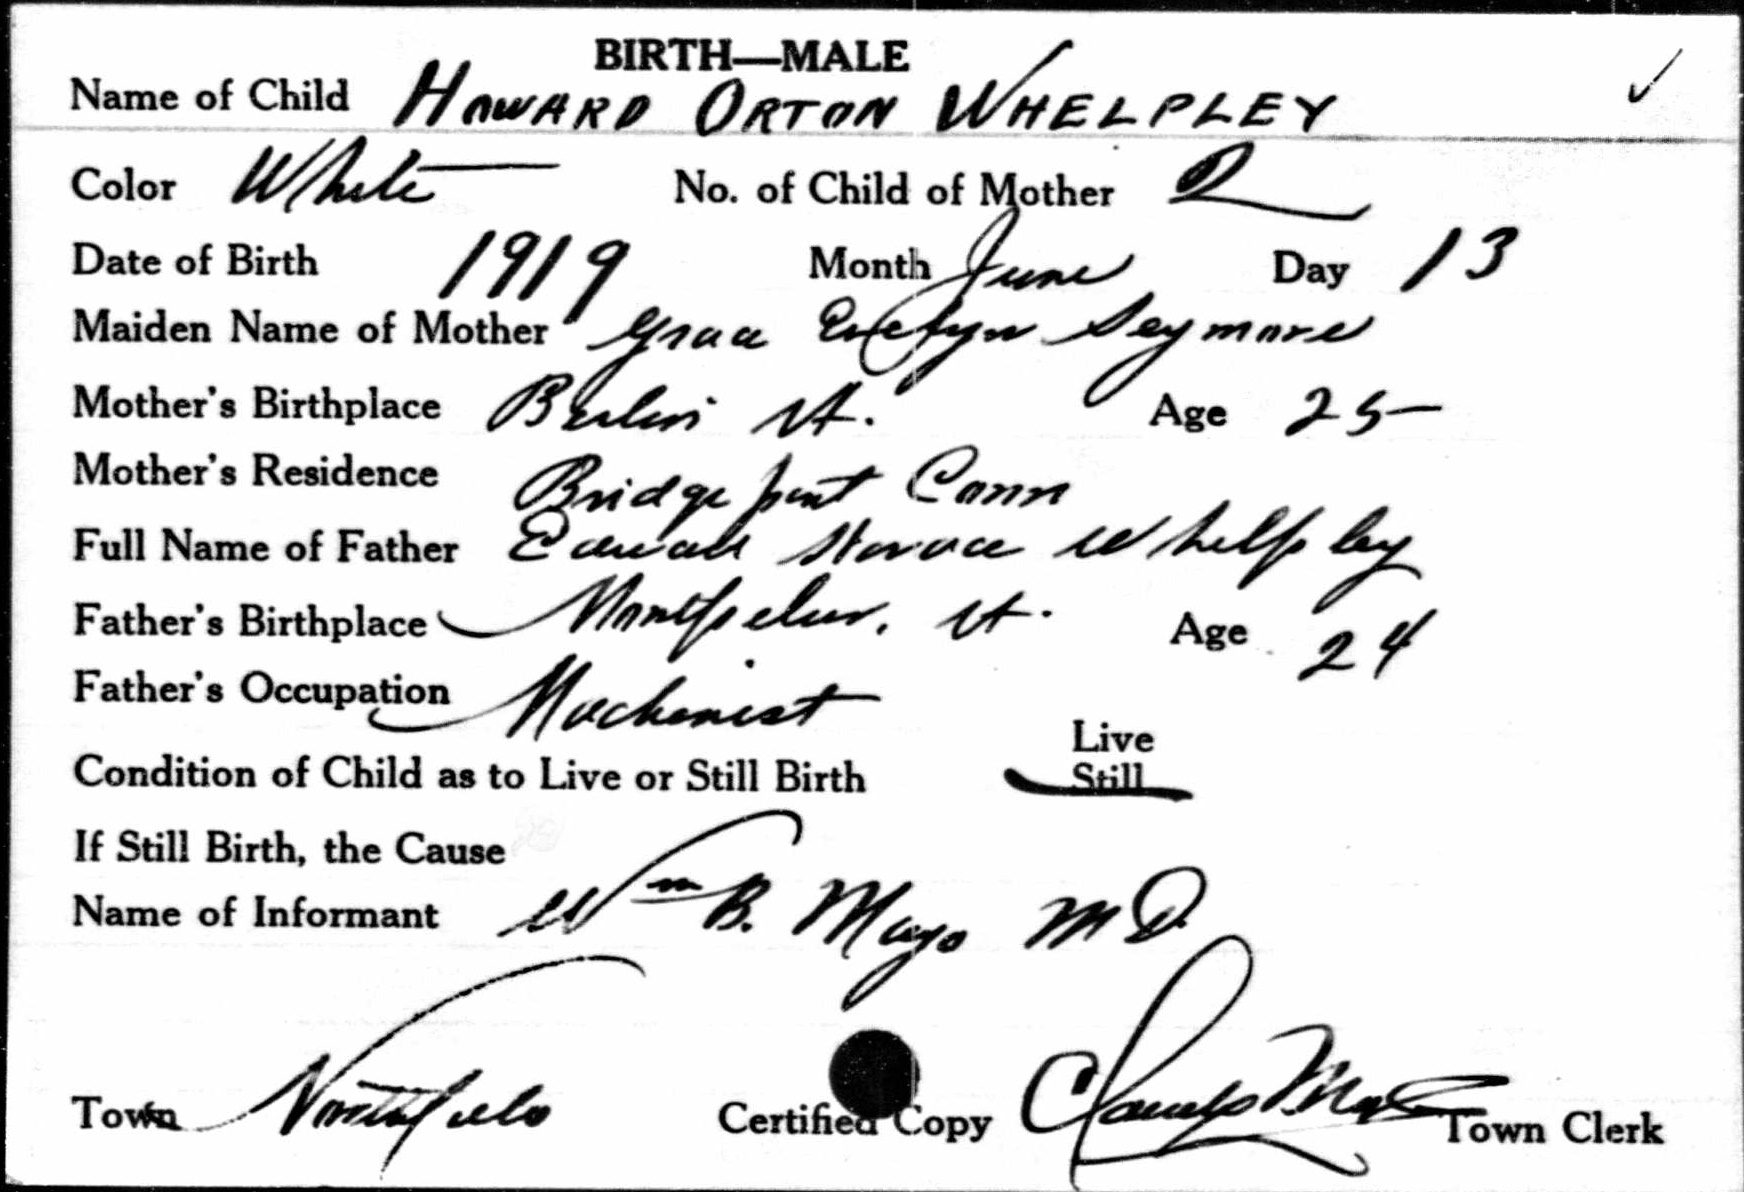 BIRTH—MALE
Name of Child HOWARD ORTON WHELPLEY
Color White No. of Child of Mother 2
Date of Birth 1919 Month June Day 13
Maiden Name of Mother Grace Evelyn Seymore
Mother's Birthplace Berlin Vt. Age 25
Mother's Residence Bridgeport Conn
Full Name of Father Edward Horace Whelpley
Father's Birthplace Montpelier, Vt. Age 24
Father's Occupation Machinist
Live
Condition of Child as to Live or Still Birth Still
If Still Birth, the Cause
Name of Informant Wm B. Mayo MD.
Town Northfield Certified Copy Town Clerk